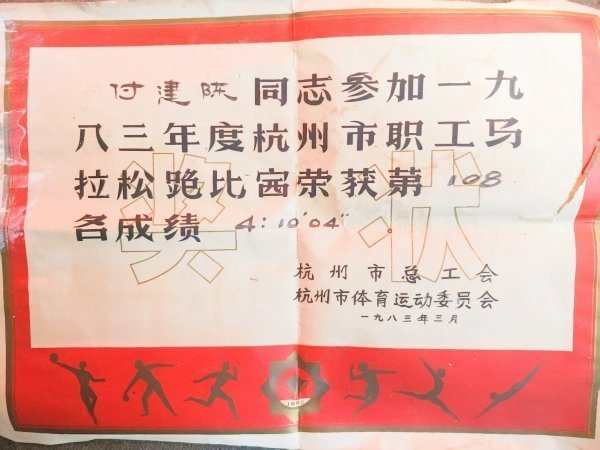 付建陈同志参加一九
八三年度杭州市职工马
拉松跑比赛荣获第108
名成绩4:10'04"。
奖状
杭州市总工会
杭州市体育运动委员会
一九八三年三月